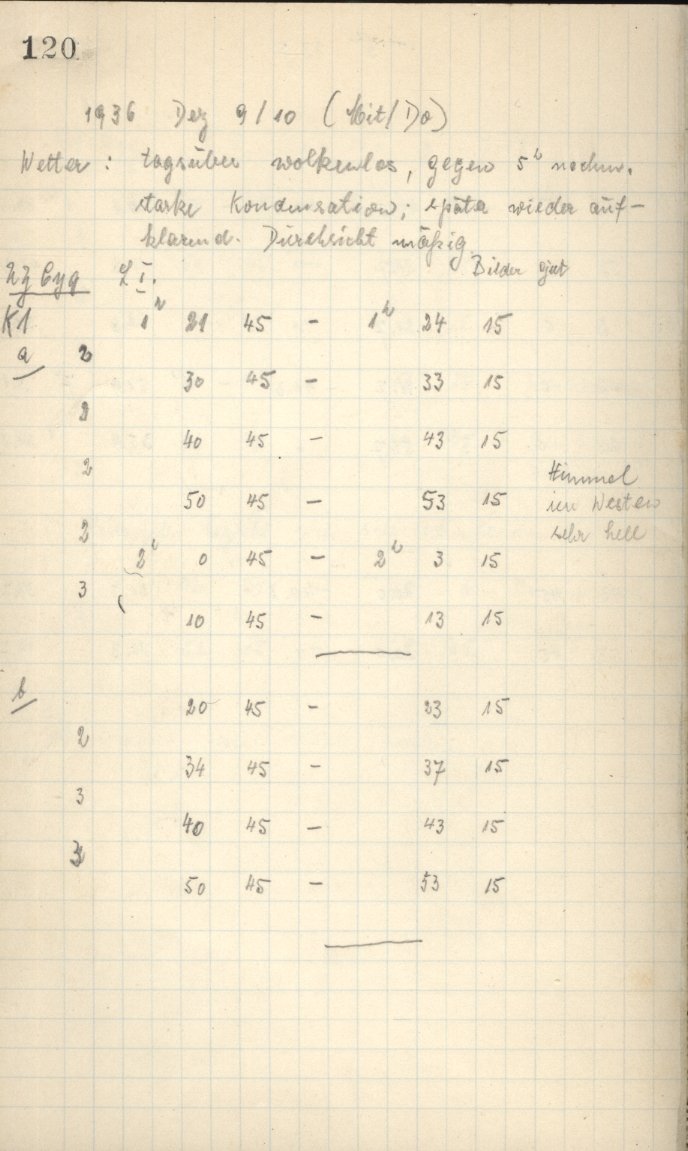 120
1936 Dez 9/10 (Mit/Do)
Wetter: tagsüber wolkenlos, gegen 5h nachm.
starke Kondensation; später wieder auf-
klarend. Durchsicht mäßig
Bilder gut
ZZ Cyg I.
K1 1h 21 45 – 1h 24 15
a 2
30 45 – 33 15
2
40 45 – 43 15
2
Himmel
50 45 – 53 15 im Westen
2 sehr hell
2h 0 45 – 2h 3 15
3
10 45 – 13 15
b
20 45 – 23 15
2
34 45 – 37 15
3
40 45 – 43 15
50 45 – 53 15